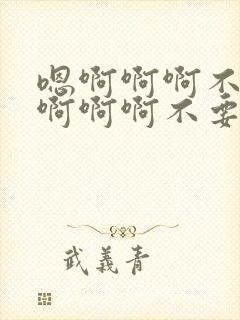 嗯啊啊啊不
啊啊啊不要
武義青